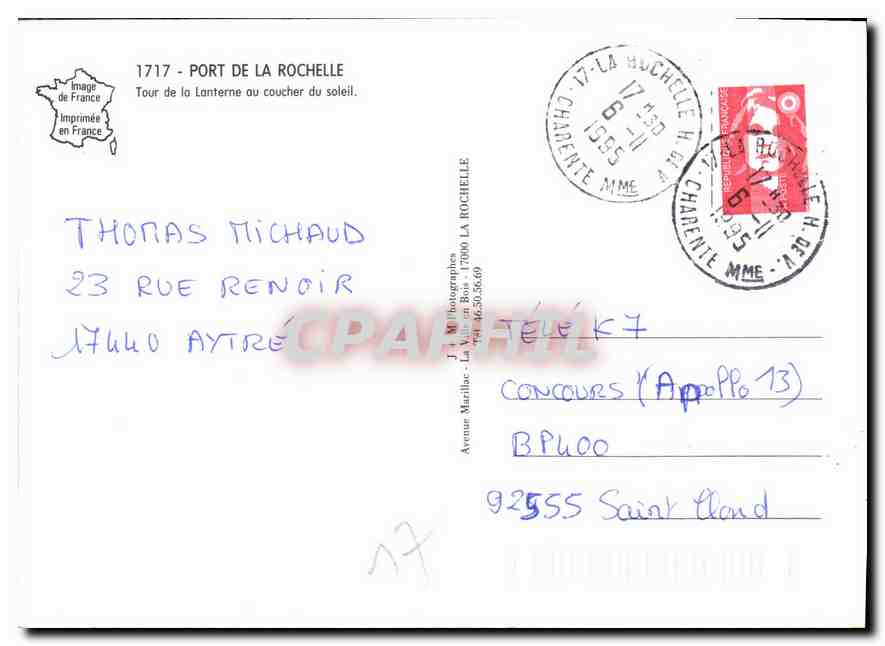 1717 - PORT DE LA ROCHELLE
Tour de la Lanterne au coucher du soleil.
Image
de France
Imprimée
en France
17-LA ROCHELLE H. DE V.
17 H30
6 -11
1995
CHARENTE MME
RÉPUBLIQUE FRANÇAISE
17-LA ROCHELLE H. DE V.
17 H30
6 -11
1995
CHARENTE MME
THOMAS MICHAUD
23 RUE RENOIR
17440 AYTRÉ
CPAPHIL
J & M Photographes
Avenue Marillac - La Ville en Bois - 17000 LA ROCHELLE
Tél. 46.50.56.69
TÉLÉ K7
CONCOURS (Appollo 13)
BP400
92555 Saint Cloud
17